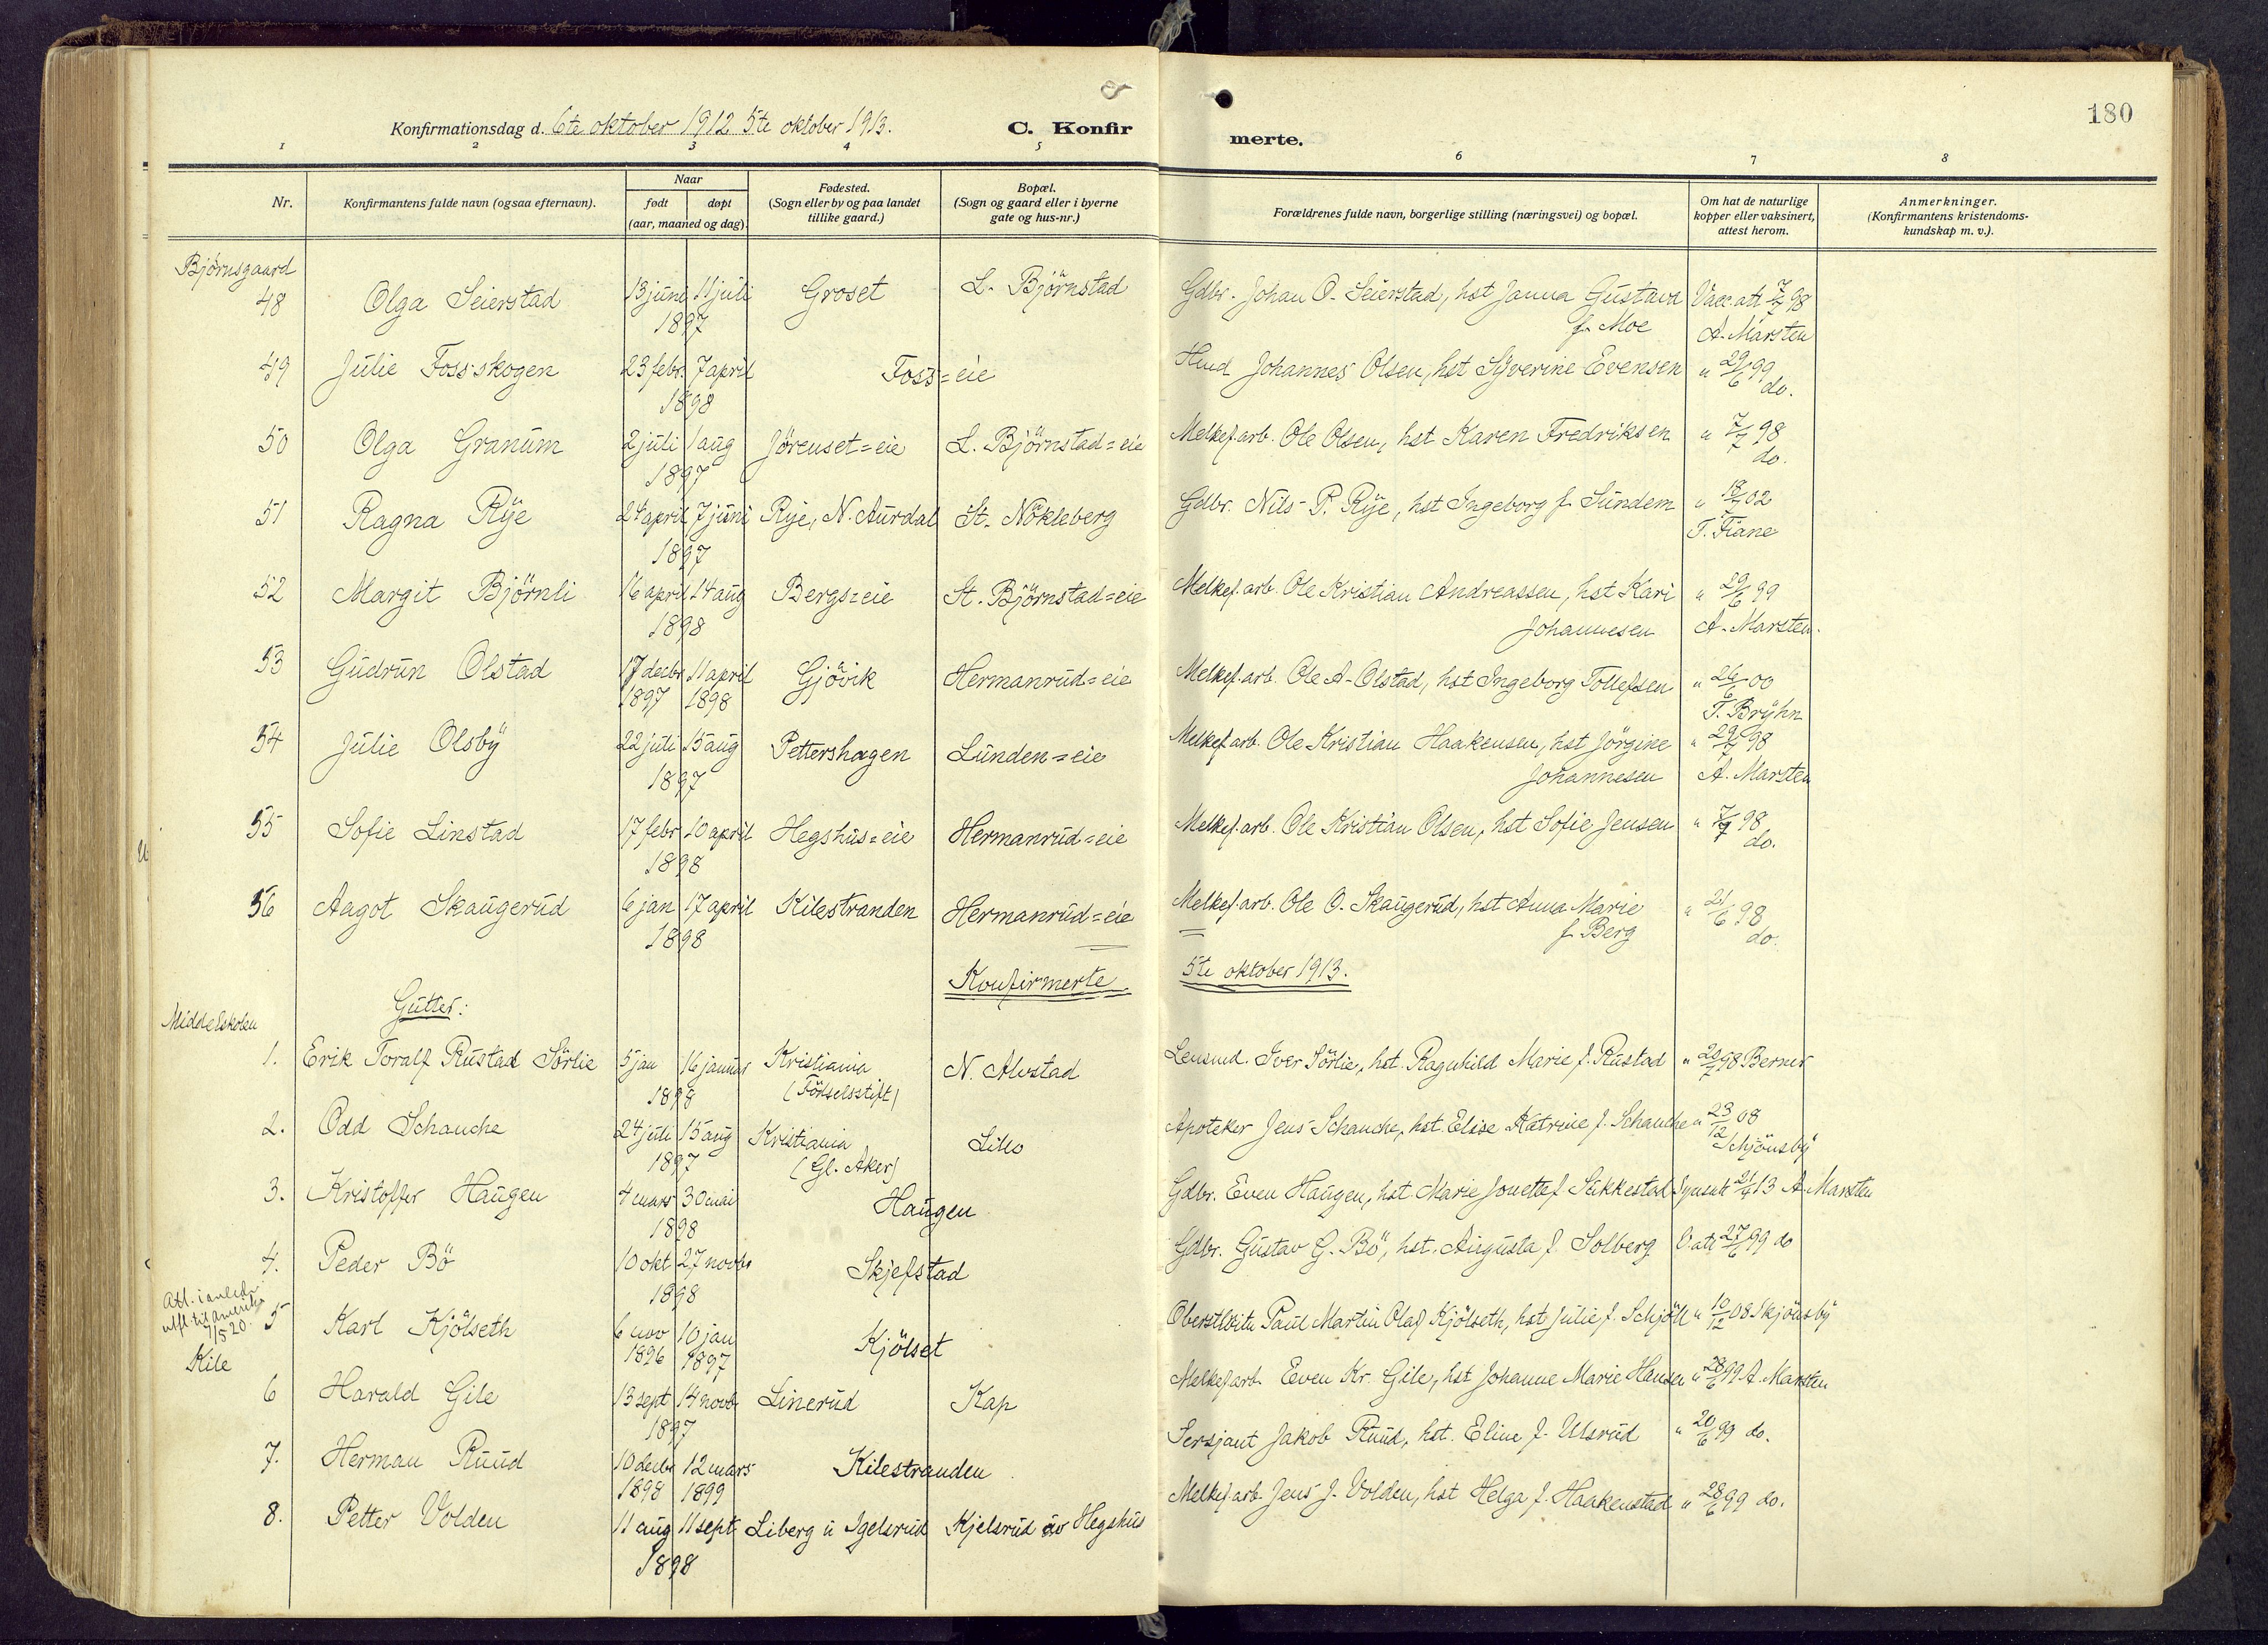 180
Konfirmationsdag d. 6te oktober 1912 5te oktober 1913.
C. Konfir
merte.
1 2 3 4 5 6 7 8
Nr.
Konfirmantens fulde navn (ogsaa efternavn).
Naar
født døpt
(aar, maaned og dag)
Fødested.
(Sogn eller by og paa landet
tillike gaard.)
Bopæl.
(Sogn og gaard eller i byerne
gate og hus-nr.)
Forældrenes fulde navn, borgerlige stilling (næringsvei) og bopæl.
Om hat de naturlige
kopper eller vaksinert,
attest herom.
Anmerkninger.
(Konfirmantens kristendoms-
kundskap m. v.).
Bjørnsgaard
48 Olga Seierstad 13 juni 11 juli Groset L. Björnstad Gdbr. Johan O. Seierstad, hst Janna Gustava Vacc. att 7/7 98
1897 f. Moe A. Marsten
49 Julie Fossskogen 23 febr. 7 april Foss=eie Hmd Johannes Olsen, hst Syverine Evensen " 29/6 99
1898 do.
50 Olga Granum 2 juli 1 aug Jörenset=eie L. Björnstad=eie Melkef. arb. Ole Olsen, hst Karen Fredriksen " 7/7 98
1897 do.
51 Ragna Rye 24 april 7 juni Rye, N. Aurdal St. Nökleberg Gdbr. Nils P. Rye, hst Ingeborg f. Sundem " 18/7 02
1897 T. Fiane
52 Margit Björnli 16 april 14 aug Bergs=eie St. Björnstad=eie Melkef. arb. Ole Kristian Andreassen, hst Kari " 29/6 99
1898 Johannesen A. Marsten.
53 Gudrun Olstad 17 decbr 11 april Gjövik Hermanrud=eie Melkef. arb. Ole A. Olstad, hst Ingeborg Tollefsen " 26/6 00
1897 1898 T. Bryhn
54 Julie Olsby 22 juli 15 aug Pettershagen Lunden=eie Melkef. arb. Ole Kristian Haakensen, hst Jörgine " 29/7 98
1897 Johannesen A. Marsten
55 Sofie Linstad 17 febr 10 april Hegshus=eie Hermanrud=eie Melkef. arb. Ole Kristian Olsen, hst Sofie Jensen " 7/7 98
1898 do.
56 Aagot Skaugerud 6 jan 17 april Kilestranden Hermanrud=eie Melkef. arb. Ole O. Skaugerud, hst Anna Marie " 21/6 98
1898 f. Berg do.
Konfirmerte 5te oktober 1913.
Gutter:
Middelskolen
1. Erik Toralf Rustad Sörlie 5 jan 16 januar Kristiania N. Alvstad Lensmd. Iver Sörlie, hst. Ragnhild Marie f. Rustad " 20/7 98 Berner
1898 (Födselsstift)
2. Odd Schanche 24 juli 15 aug Kristiania Lillo Apoteker Jens Schanche, hst. Elise Katrine f. Schanche " 23/12 08
1897 (Gl. Aker) Schjönsby
3. Kristoffer Haugen 4 mars 30 mai Haugen Gdbr. Even Haugen, hst. Marie Jonette f. Stikkestad 13 A. Marsten
1898
4. Peder Bö 10 okt 27 novbr Skjefstad Gdbr. Gustav G. Bö, hst. Augusta f. Solberg V. att 27/6 99 do
1898
Att. i anledn
utfl. til Amerika
7/5 20.
5 Karl Kjölseth 6 nov 10 jan Kjölset Oberstlöitn Paul Martin Olaf Kjölseth, hst Julie f. Schjöll " 10/12 08 Skjönsby
1896 1897
Kile
6 Harald Gile 13 sept 14 novb Linerud Kap Melkef. arb. Even Kr. Gile, hst Johanne Marie Hansen " 28/6 99 A. Marsten
1897
7. Herman Ruud 10 decbr 12 mars Kilestranden Sersjant Jakob Ruud, hst. Eline f. Ulsrud " 20/6 99 do.
1898 1899
8. Petter Volden 11 aug 11 sept Liberg u Igelsrud Kjelsrud av Hegshus Melkef. arb. Jens J. Volden, hst Helga f. Haakenstad " 28/6 99 do.
1898